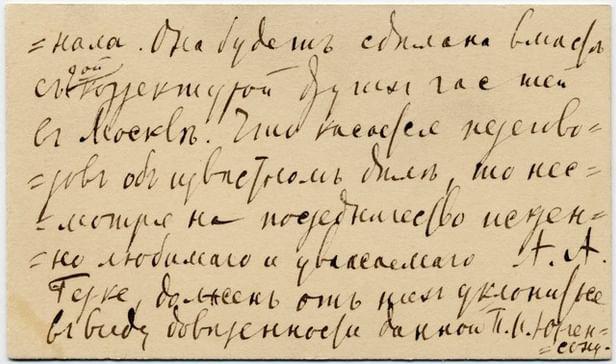 =нала. Она будетъ сдѣлана вмѣстѣ
съ 2ой корректурой другихъ частей
въ Москвѣ. Что касается перегово-
=ровъ объ извѣстномъ дѣлѣ, то нес-
=мотря на посредничество искрен-
=но любимаго и уважаемаго А. А.
Герке, долженъ отъ нихъ уклониться
въ виду довѣренности данной П. И. Юрген-
=сону.